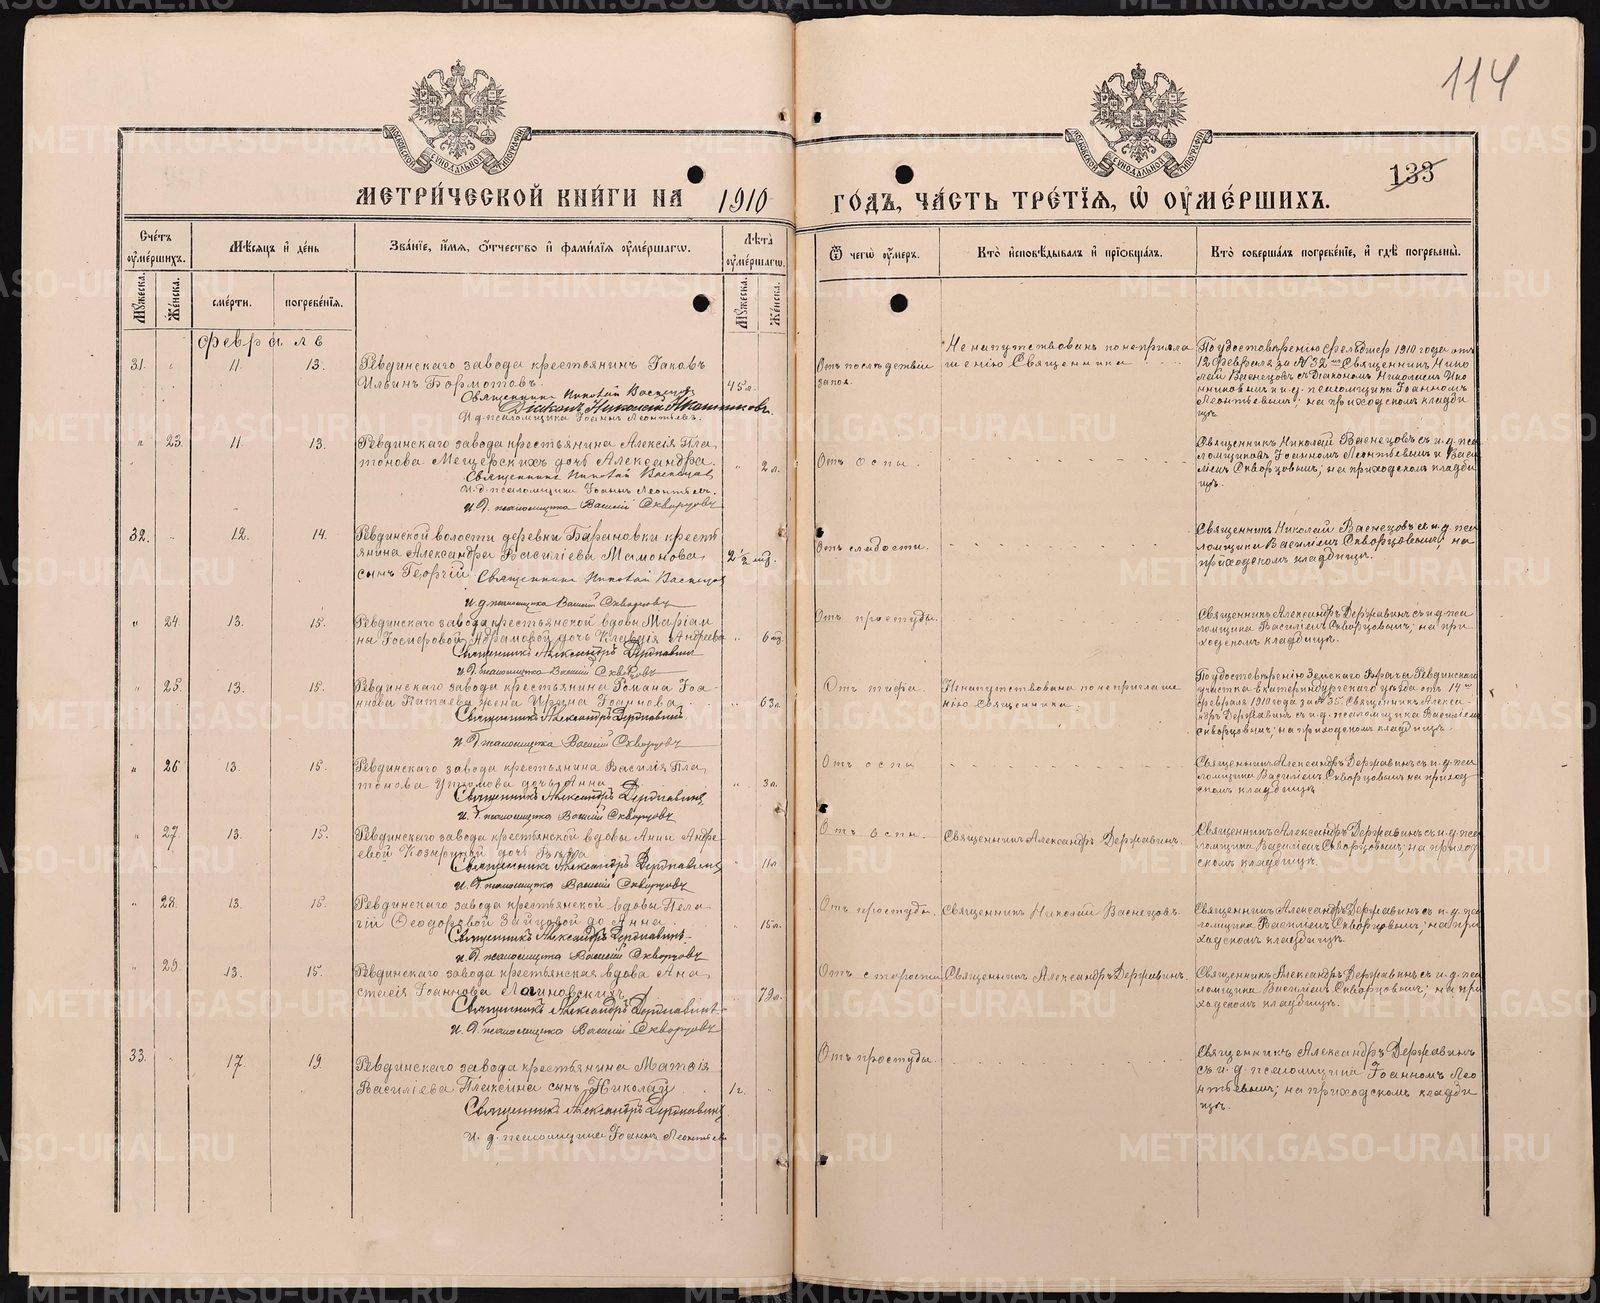 114
133
МЕТРИЧЕСКОЙ КНИГИ НА 1910
ГОДЪ, ЧАСТЬ ТРЕТІЯ, Ѿ ОУМЕРШИХЪ.
Счетъ оумершихъ.
Мѣсяцъ и день
Званіе, имя, отчество и фамилія оумершагѡ.
Лѣта оумершагѡ.
Мужеска.
Женска.
смерти.
погребенія.
Мужеска.
Женска.
Ѿ чегѡ оумеръ.
Кто исповѣдывалъ и пріобщалъ.
Кто совершалъ погребеніе, и гдѣ погребены.
Февраль
31. 11. 13. Ревдинскаго завода крестьянинъ Іаковъ
Ильинъ Бормотовъ. 45 л.
Священникъ Николай Васнецовъ
Діаконъ Николай
И. д. псаломщика Іоаннъ Леонтьевъ.
Отъ послѣдствій
запоя.
Не напутствованъ по непригла
шенію Священника
По удостовѣренію фельдшер 1910 года отъ
12 Февраля за № 32 Священникъ Нико
лай Васнецовъ съ Діакономъ Николаемъ
и и. д. псаломщика Іоанномъ
Леонтьевымъ; на приходскомъ кладби
щѣ.
23. 11. 13. Ревдинскаго завода крестьянина Алексія Пла
тонова Мещерскихъ дочь Александра. 2 л.
Священникъ Николай Васнецовъ
И. д. псаломщика Іоаннъ Леонтьевъ.
И. д. псаломщика Василій Скворцовъ
Отъ оспы.
Священникъ Николай Васнецовъ съ и. д. пса
ломщиковъ Іоанномъ Леонтьевымъ и Васи
ліемъ Скворцовымъ; на приходскомъ кладби
щѣ.
32. 12. 14. Ревдинской волости деревни Барановки кресть
янина Александра Василіева Мамонова
сынъ Георгій 2 ½ нед.
Священникъ Николай Васнецов
И. д. псаломщика Василій Скворцовъ
Отъ слабости.
Священникъ Николай Васнецовъ съ и. д. пса
ломщика Василіемъ Скворцовымъ; на
приходскомъ кладбищѣ.
24. 13. 15. Ревдинскаго завода крестьянской вдовы Маріам
ны дочь Клавдія Андреева 6 нед
Священникъ Александръ Державинъ
И. д. псаломщика Василій Скворцовъ
Отъ простуды.
Священникъ Александръ Державинъ съ и. д. пса
ломщика Василіемъ Скворцовымъ; на при
ходскомъ кладбищѣ.
25. 13. 15. Ревдинскаго завода крестьянина Романа Іоа
ннова жена Ирина Іоаннова. 63 л.
Священникъ Александръ Державинъ
И. д. псаломщика Василій Скворцовъ
Отъ тифа
Не напутствована по неприглаше
нію Священника.
По удостовѣренію Земскаго Врача Ревдинскаго
участка Екатеринбургскаго уѣзда отъ 14
февраля 1910 года за № 35. Священникъ Алекса
ндръ Державинъ съ и. д. псаломщика Василіемъ
Скворцовымъ; на приходскомъ кладбищѣ.
26 13. 15. Ревдинскаго завода крестьянина Василія Пла
тонова Утюмова дочь Анна 3 л.
Священникъ Александръ Державинъ
И. д. псаломщика Василій Скворцовъ
Отъ оспы
Священникъ Александръ Державинъ съ и. д. пса
ломщика Василіемъ Скворцовымъ на приход
скомъ кладбищѣ
27. 13. 15. Ревдинскаго завода крестьянской вдовы Анны Андре
евой дочь Вѣра 11 л
Священникъ Александръ Державинъ
И. д. псаломщика Василій Скворцовъ
Отъ оспы.
Священникъ Александръ Державинъ.
Священникъ Александръ Державинъ съ и. д. пса
ломщика Василіемъ Скворцовымъ, на приход
скомъ кладбищѣ.
28. 13. 15. Ревдинскаго завода крестьянской вдовы Пела
гіи Ѳеодоровой Зайцовой до Анна 15 л.
Священникъ Александръ Державинъ
И. д. псаломщика Василій Скворцовъ
Отъ простуды.
Священникъ Николай Васнецовъ.
Священникъ Александръ Державинъ съ и. д. пса
ломщика Василіемъ Скворцовымъ; на при
ходскомъ кладбищѣ.
29. 13. 15. Ревдинскаго завода крестьянская вдова Ана
стасія Іоаннова Логиновскихъ 79 л.
Священникъ Александръ Державинъ
И. д. псаломщика Василій Скворцовъ
Отъ старости
Священникъ Александръ Державинъ.
Священникъ Александръ Державинъ съ и. д. пса
ломщика Василіемъ Скворцовымъ; на при
ходскомъ кладбищѣ.
33. 17. 19. Ревдинскаго завода крестьянина Матѳія
Василіева Плаксина сынъ Николай 1 г.
Священникъ Александръ Державинъ
И. д. псаломщика Іоаннъ Леонтьев
Отъ простуды.
Священникъ Александръ Державинъ
съ и. д. псаломщика Іоанномъ Лео
нтьевымъ; на приходскомъ кладби
щѣ.
METRIKI.GASO-URAL.RU